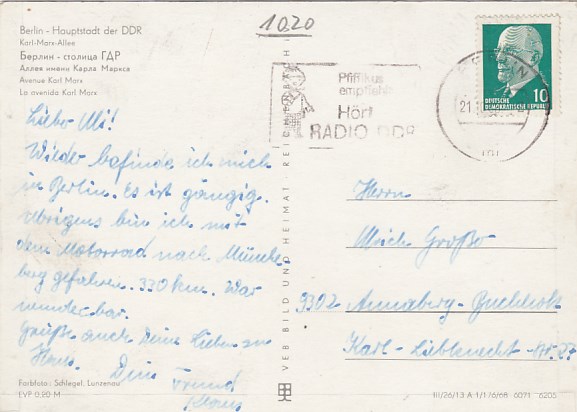 1020
Berlin - Hauptstadt der DDR
Karl-Marx-Allee
Берлин - столица ГДР
Аллея имени Карла Маркса
Avenue Karl Marx
La avenida Karl Marx
Pfiffikus
empfiehlt
Hört
RADIO DDR
BERLIN
21.
101
10
DEUTSCHE
DEMOKRATISCHE REPUBLIK
Lieber Uli!
Wieder befinde ich mich
in Berlin. Es ist
Übrigens bin ich mit
dem Motorrad nach Münche
berg gefahren. 330 km. War
wunderbar.
Grüße auch Deine Lieben zu
Haus. Dein Freund
Klaus
VEB BILD UND HEIMAT REICHENBACH i
Herrn
Ulrich Große
9302 Annaberg-Buchholz
Karl-Liebknecht-Str. 27
Farbfoto: Schlegel, Lunzenau
EVP 0,20 M
III/26/13 A 1/176/68 6071 6205